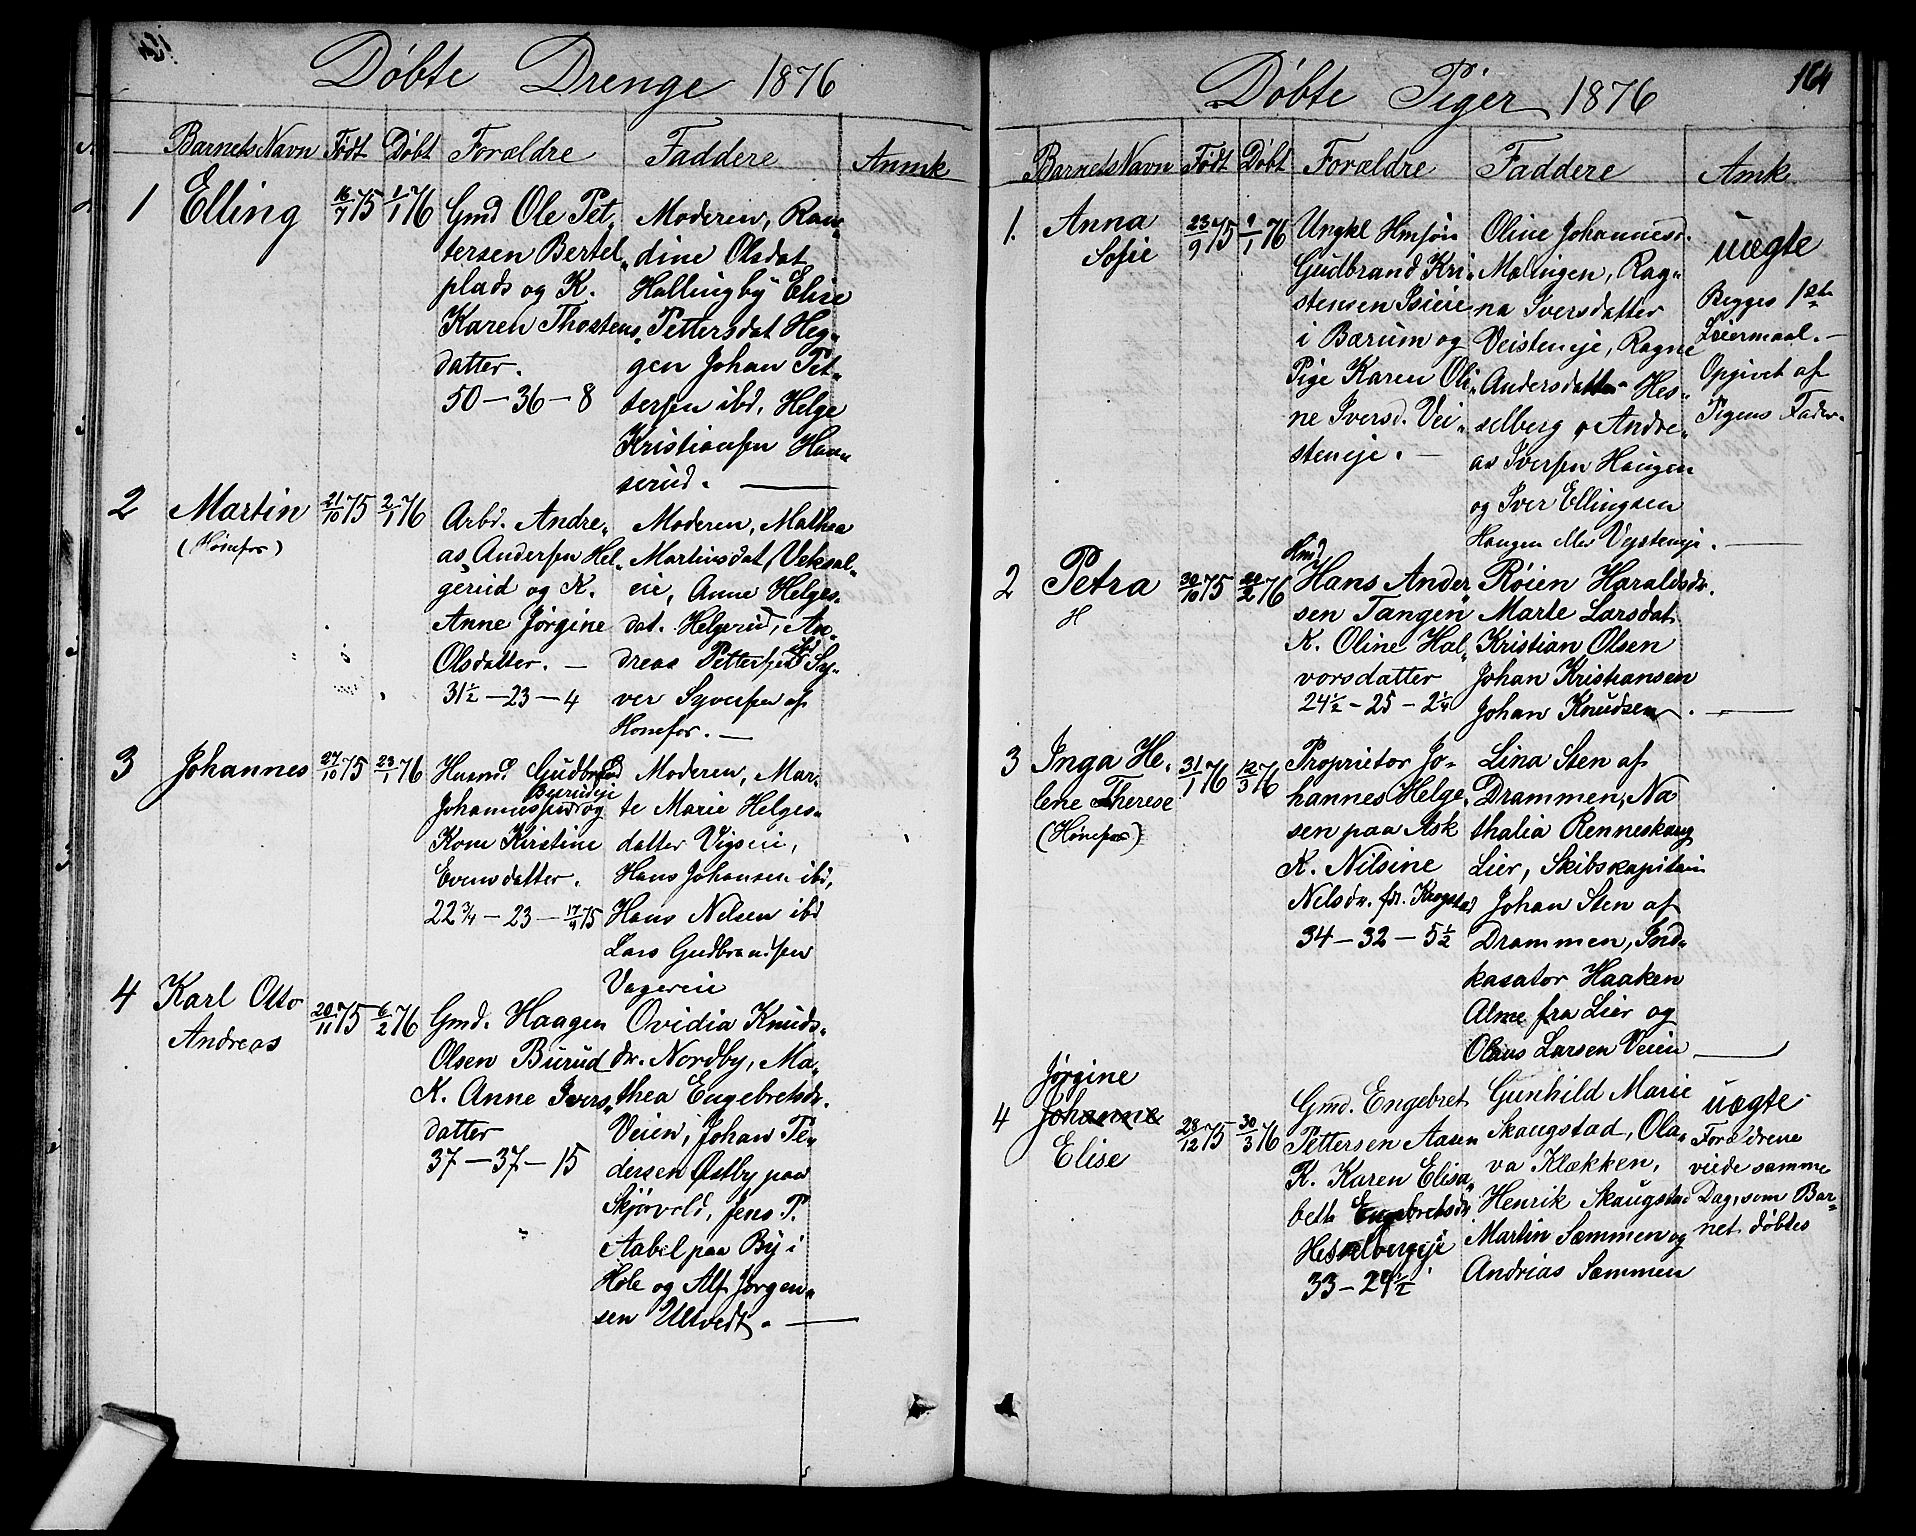 Døbte Drenge 1876
Barnets Navn Født Døbt Forældre Faddere Anmk
1 Elling 16/7 75 1/1 76
Gmd Ole Pet
tersen Bertel
plads og K.
Karen Thostens
datter.
50 - 36 - 8
Moderen, Ran
dine Olsdat
Hallingby Elise
Pettersdat Heg
gen Johan Pet
tersen ibd. Helge
Kristiansen
serud.
2 Martin 21/10 75 2/1 76
(Hønefos)
Arbd. Andre
as Andersen Hel
gerud og K.
Anne Jørgine
Olsdatter. -
31 1/2 - 23 - 4
Moderen, Mathea
Martinsdat Veksal
eie, Anne Helges
dat. Helgerud, An
dreas Pettersen Sy
ver Syversen af
Honefos. -
3 Johannes 27/10 75 23/1 76
Husmd Gudbrand
Johannessen og
Kone Kirstine
Evensdatter.
22 3/4 - 23 - 17/9 75
Moderen, Mar
te Marie Helges
datter Vigseie,
Hans Johansen ibd,
Hans Nelsen ibd
Lars Gudbrandsen
4 Karl Otto
Andreas
20/11 75 6/2 76
Gmd. Haagen
Olsen Burud
K. Anne Ivers
datter
37 - 37 - 15
Ovidia Knuds
dr. Nordby, Ma
thea Engebretsdr.
Veien, Johan Pe
dersen Østby paa
Skjørvold, Jens P.
Aabel paa By i
Hole og Alf Jørgen
sen Ultvedt. -
Døbte Piger 1876
164
Barnets Navn Født Døbt Forældre Faddere Amk
1. Anna
Sofie
23/9 75 9/1 76
Ungkl Hmsøn
Gudbrand Kri
stensen
i Bærum og
Pige Karen Oli
ne Iversd. Vei
steneje. -
Oline Johannesd.
Malingen, Rag
na Iversdatter
Veisteneje, Ragne
Andersdatter Hes
selberg og Andre
as Iversen Haugen
og Iver Ellingsen
Haugen eller Vejsteneje. -
uægte
Begges 1ste
Leiermaal. -
Opgivet af
Pigens Fader.
2 Petra
H
30/10 75 20/2 76
Hmd
Hans Ander
sen Tangen
K. Oline Hal
vorsdatter
24 1/2 - 25 - 2 1/4
Røien Haraldsdr.
Marte Larsdat
Kristian Olsen
Johan Kristiansen
Johan Knudsen. -
3 Inga He
lene Therese
(Hønefos)
31/1 76 12/3 76
Proprietor Jo-
hannes Helge
sen paa Ask
K. Nilsine
Nilsdr. fr. Krogstad
34 - 32 - 5 1/2
Lina Sten af
Drammen, Na
thalia Renneskaug
Lier, Skibskapitain
Johan Sten af
Drammen, Ind
kasator Haaken
Alme fra Lier og
Olaus Larsen Veien -
Jørgine
4 Johanne
Elise
28/12 75 30/3 76
Gmd. Engebret
Pettersen Aasen
K. Karen Elisa
beth Engebretsdr
Hesselbergeje
33 - 24 1/2
Gunhild Marie
Skaugstad, Ola
va Klækken,
Henrik Skaugstad
Martin Sammen og
Andrias Sammen
uægte
Forældrene
viede samme
Dag, som Bar
net døbtes